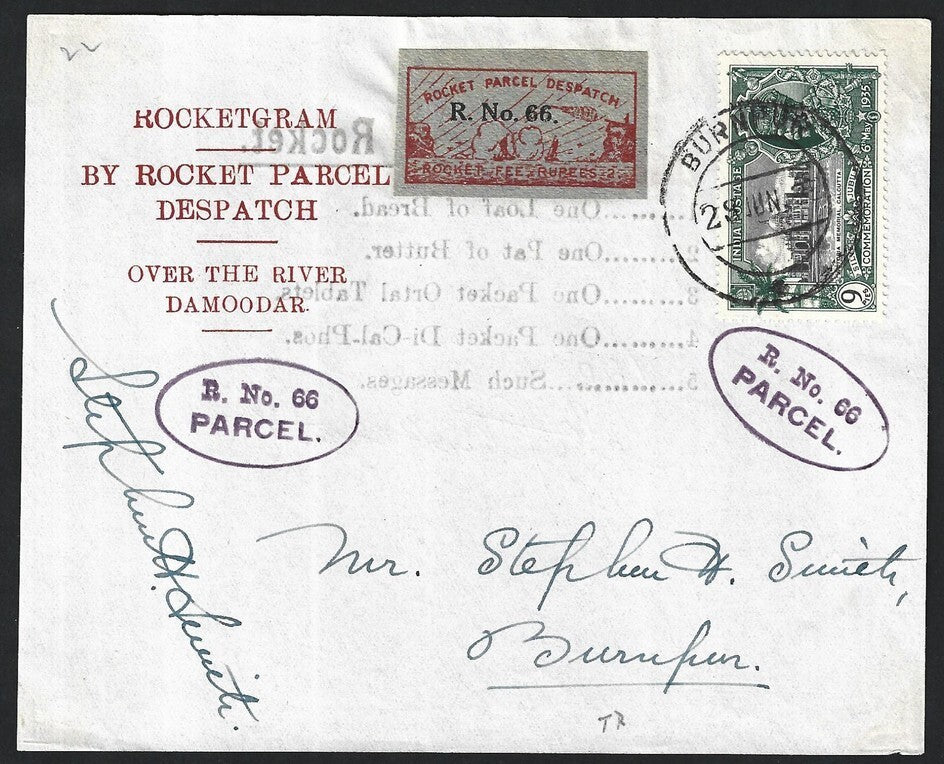 22
ROCKETGRAM
BY ROCKET PARCEL
DESPATCH
OVER THE RIVER
DAMOODAR.
ROCKET PARCEL DESPATCH
R. No. 66.
ROCKET FEE RUPEES 2
BURNPUR
28 JUN.
INDIA POSTAGE
VICTORIA MEMORIAL, CALCUTTA
SILVER JUBILEE
COMMEMORATION
6th May 1935
9 PS
Rocket.
1..........One Loaf of Bread.
2..........One Pat of Butter.
3..........One Packet Ortal Tablets.
4..........One Packet Di-Cal-Phos.
5..............Such Messages.
R. No. 66
PARCEL.
R. No. 66
PARCEL.
Stephen H. Smith.
Mr. Stephen H. Smith,
Burnpur.
TR